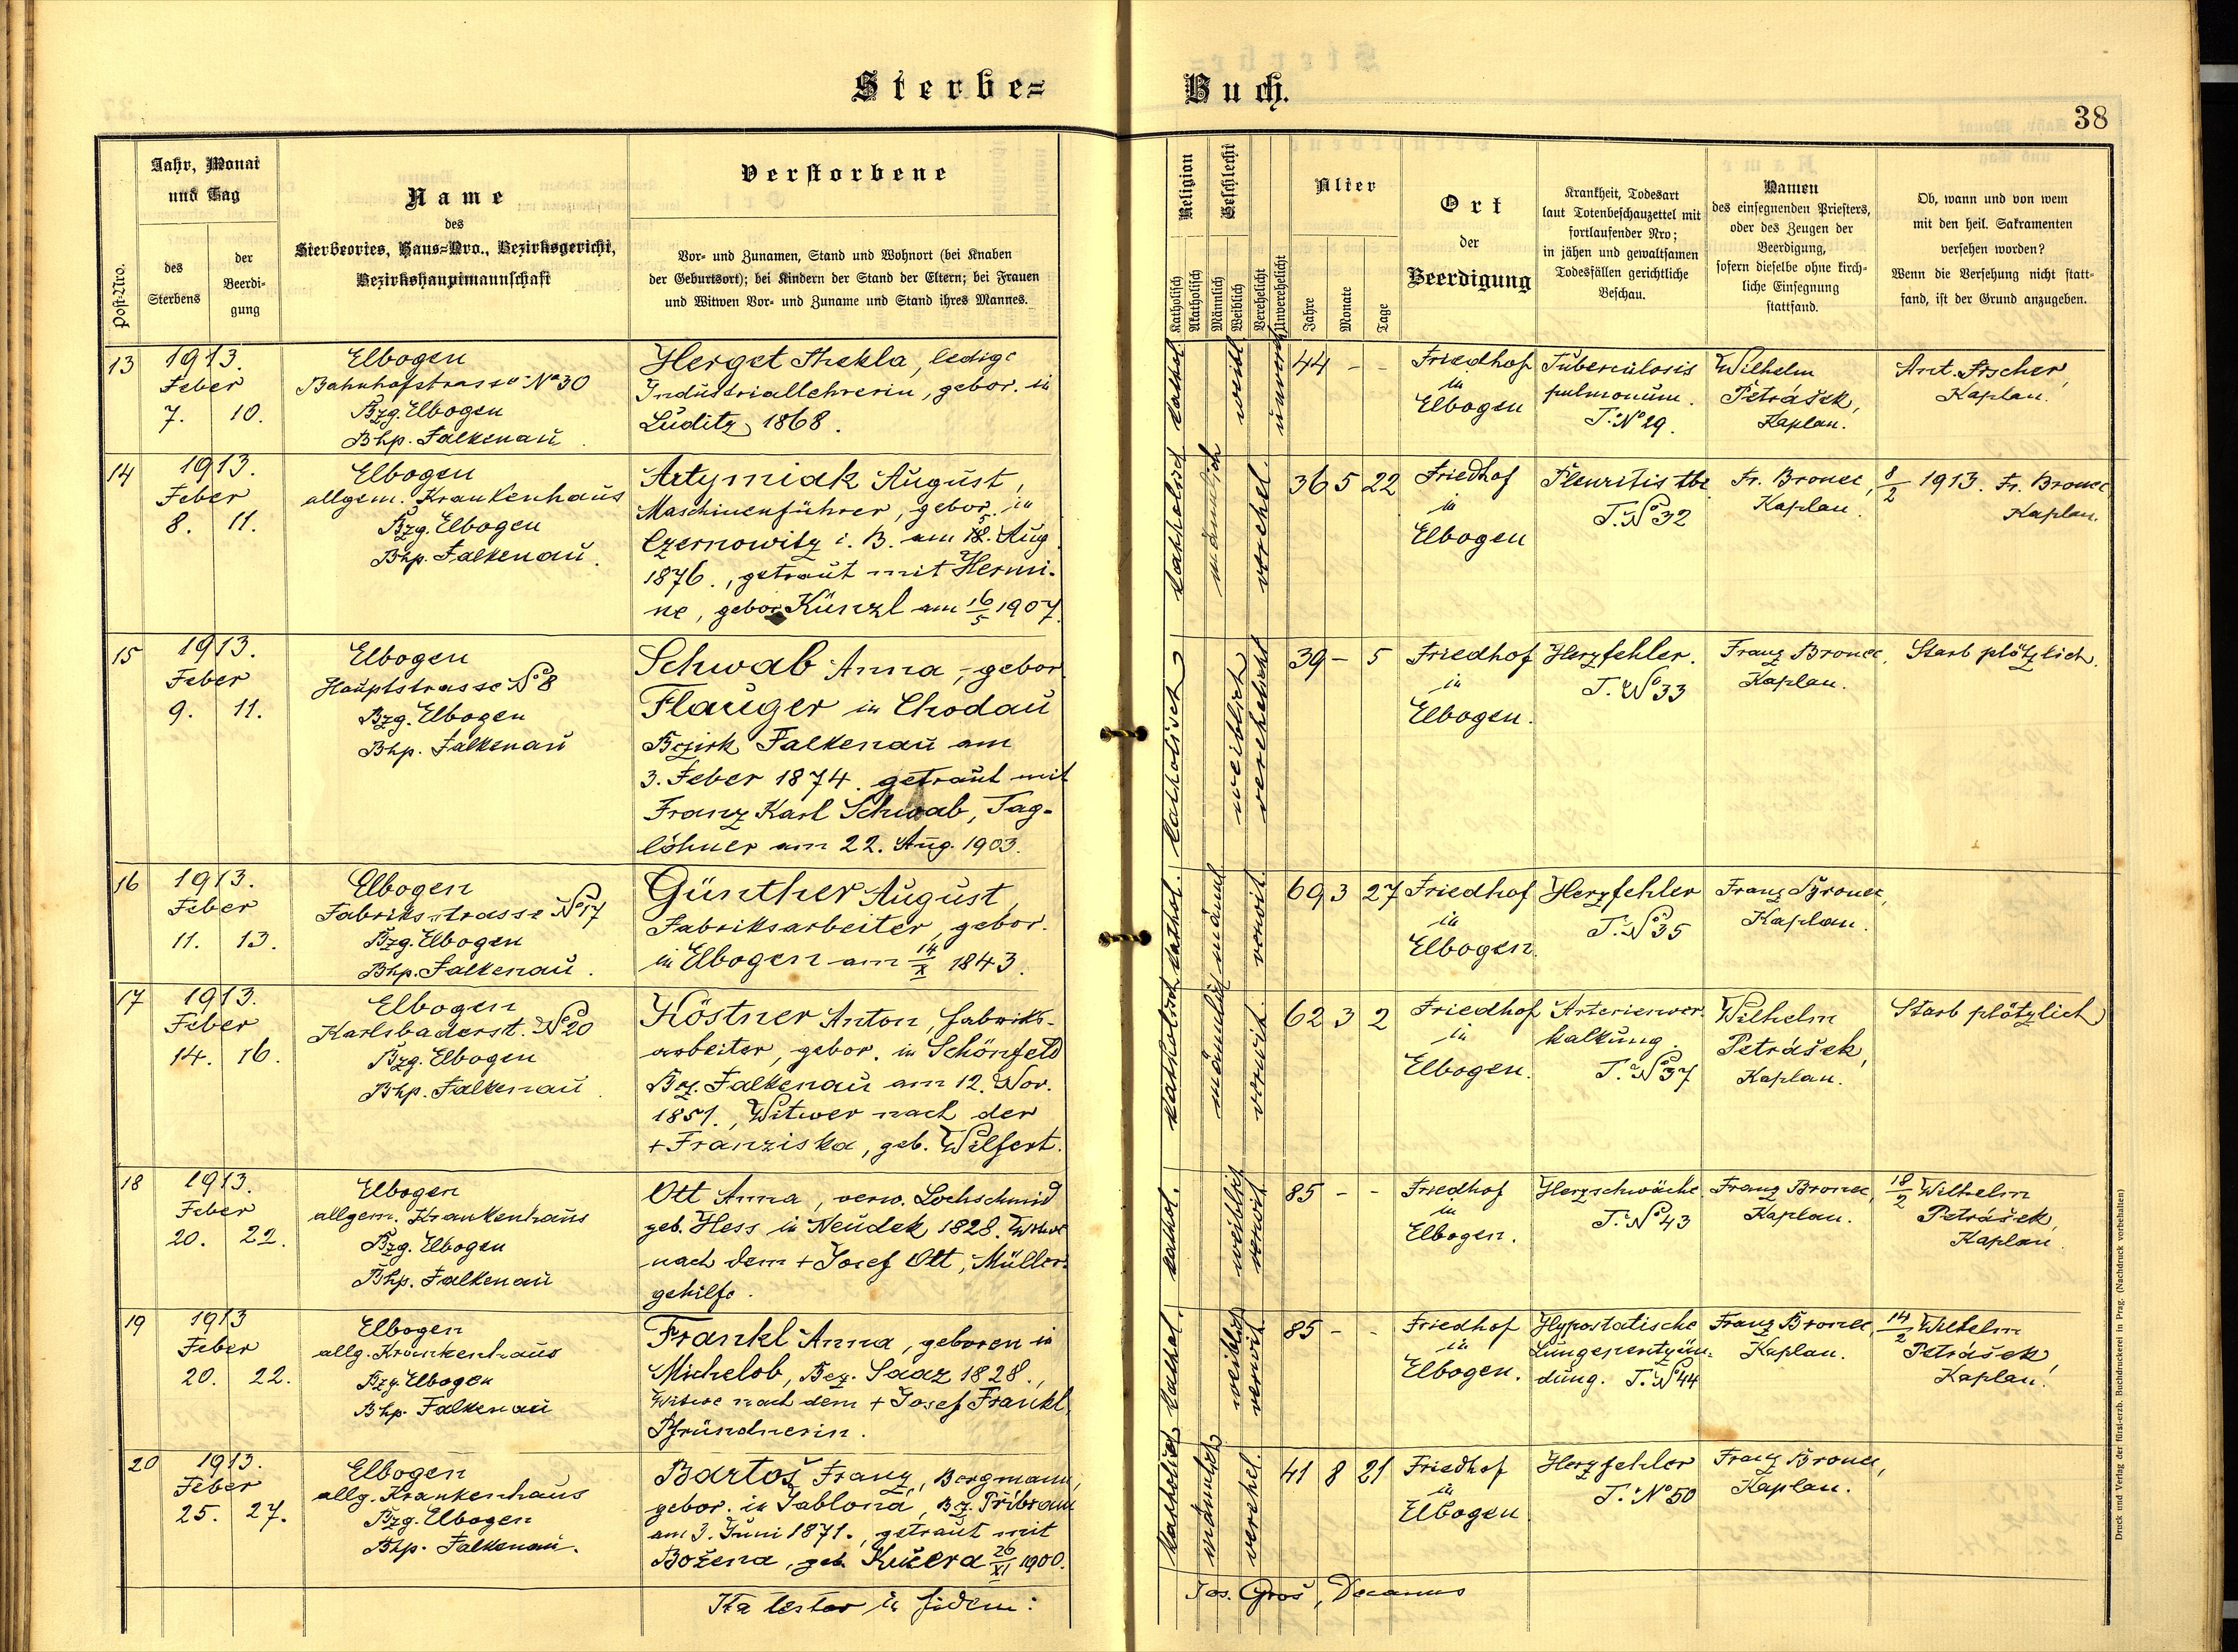 Sterbe=
Buch.
38
Post-Nro.
Jahr, Monat
und Tag
des
Sterbens
der
Beerdi-
gung
Name
des
Sterbeortes, Haus=Nro., Bezirksgericht,
Bezirkshauptmannschaft
Verstorbene
Vor- und Zunamen, Stand und Wohnort (bei Knaben
der Geburtsort); bei Kindern der Stand der Eltern; bei Frauen
und Witwen Vor- und Zuname und Stand ihres Mannes.
Religion
Katholisch
Akatholisch
Geschlecht
Männlich
Weiblich
Verehelicht
Unverehelicht
Alter
Jahre
Monate
Tage
Ort
der
Beerdigung
Krankheit, Todesart
laut Totenbeschauzettel mit
fortlaufender Nro;
in jähen und gewaltsamen
Todesfällen gerichtliche
Beschau.
Namen
des einsegnenden Priesters,
oder des Zeugen der
Beerdigung,
sofern dieselbe ohne kirch-
liche Einsegnung
stattfand.
Ob, wann und von wem
mit den heil. Sakramenten
versehen worden?
Wenn die Versehung nicht statt-
fand, ist der Grund anzugeben.
13
1913.
Feber
7. 10.
Elbogen
Bahnhofstrasse No 30
Bzg. Elbogen
Bhp. Falkenau
Herget Thekla, ledige
Industriallehrerin, gebor. in
Luditz 1868.
kathol.
weibl.
unvereh.
44 - -
Friedhof
in
Elbogen
Tuberculosis
pulmonum.
T. No 29.
Wilhelm
Petrášek,
Kaplan.
Ant. Fischer,
Kaplan.
14
1913.
Feber
8. 11.
Elbogen
allgem. Krankenhaus
Bzg. Elbogen
Bhp. Falkenau.
Artymiak August,
Maschinenführer, gebor. in
Czernowitz i. B. am Aug
1876., getraut mit Hermi-
ne, gebor. Künzl am 16/5 1907.
katholisch
männlich
verehel.
36 5 22
Friedhof
in
Elbogen
Pleuritis tbc
T. No 32
Fr. Bronec,
Kaplan.
8/2 1913. Fr. Bronec
Kaplan.
15
1913.
Feber
9. 11.
Elbogen
Hauptstrasse No 8
Bzg. Elbogen
Bhp. Falkenau
Schwab Anna, gebor.
Flauger in Chodau
Bezirk Falkenau am
3. Feber 1874. getraut mit
Franz Karl Schwab, Tag-
löhner am 22. Aug. 1903.
katholisch
weiblich
verehelicht
39 - 5
Friedhof
in
Elbogen.
Herzfehler.
T. No 33
Franz Bronec,
Kaplan.
Starb plötzlich.
16
1913.
Feber
11. 13.
Elbogen
Fabriksstrasse No 17
Bzg. Elbogen
Bhp. Falkenau.
Günther August,
Fabriksarbeiter, gebor.
in Elbogen am 14/X 1843.
kathol.
männl.
verwit.
69 3 27
Friedhof
in
Elbogen.
Herzfehler
T. No 35
Franz Bronec,
Kaplan.
17
1913.
Feber
14. 16.
Elbogen
Karlsbaderst. No 20
Bzg. Elbogen
Bhp. Falkenau.
Köstner Anton, fabriks-
arbeiter, gebor. in Schönfeld
Bez. Falkenau am 12. Nov.
1851., Witwer nach der
+ Franziska, geb. Wilfert.
katholisch
männlich
verwit.
62 3 2
Friedhof
in
Elbogen.
Arterienver-
kalkung.
T. No 37
Wilhelm
Petrášek,
Kaplan.
Starb plötzlich
18
1913.
Feber
20. 22.
Elbogen
allgem. Krankenhaus
Bzg. Elbogen
Bhp. Falkenau
Ott Anna, verw. Lochschmid
geb. Hess in Neudek 1828. Witwe
nach dem + Josef Ott, Müller-
gehilfe.
kathol.
weiblich
verwit.
85 - -
Friedhof
in
Elbogen.
Herzschwäche
T. No 43
Franz Bronec,
Kaplan.
18/2 Wilhelm
Petrášek,
Kaplan
19
1913
Feber
20. 22.
Elbogen
allg. Krankenhaus
Bzg. Elbogen
Bhp. Falkenau
Frankl Anna, geboren in
Michelob, Bez. Saaz 1828.,
Witwe nach dem + Josef Frankl,
Pfründnerin.
kathol.
weiblich
verwit.
85 - -
Friedhof
in
Elbogen.
Hypostatische
Lungenentzün-
dung. T. No 44
Franz Bronec,
Kaplan.
14/2 Wilhelm
Petrášek,
Kaplan.
20
1913.
Feber
25. 27.
Elbogen
allg. Krankenhaus
Bzg. Elbogen
Bhp. Falkenau.
Bartoš Franz, Bergmann,
gebor. in Jablona, Bz. Přibram
am 3. Juni 1871., getraut mit
Božena, geb. Kučera 26/XI 1900.
katholisch
männlich
verehel.
41 8 21
Friedhof
in
Elbogen
Herzfehler
T. No 50
Franz Bronec,
Kaplan.
Ita testor in fidem:
Jos. Groš, Decanus
Druck und Verlag der fürst-erzb. Buchdruckerei in Prag. (Nachdruck vorbehalten)